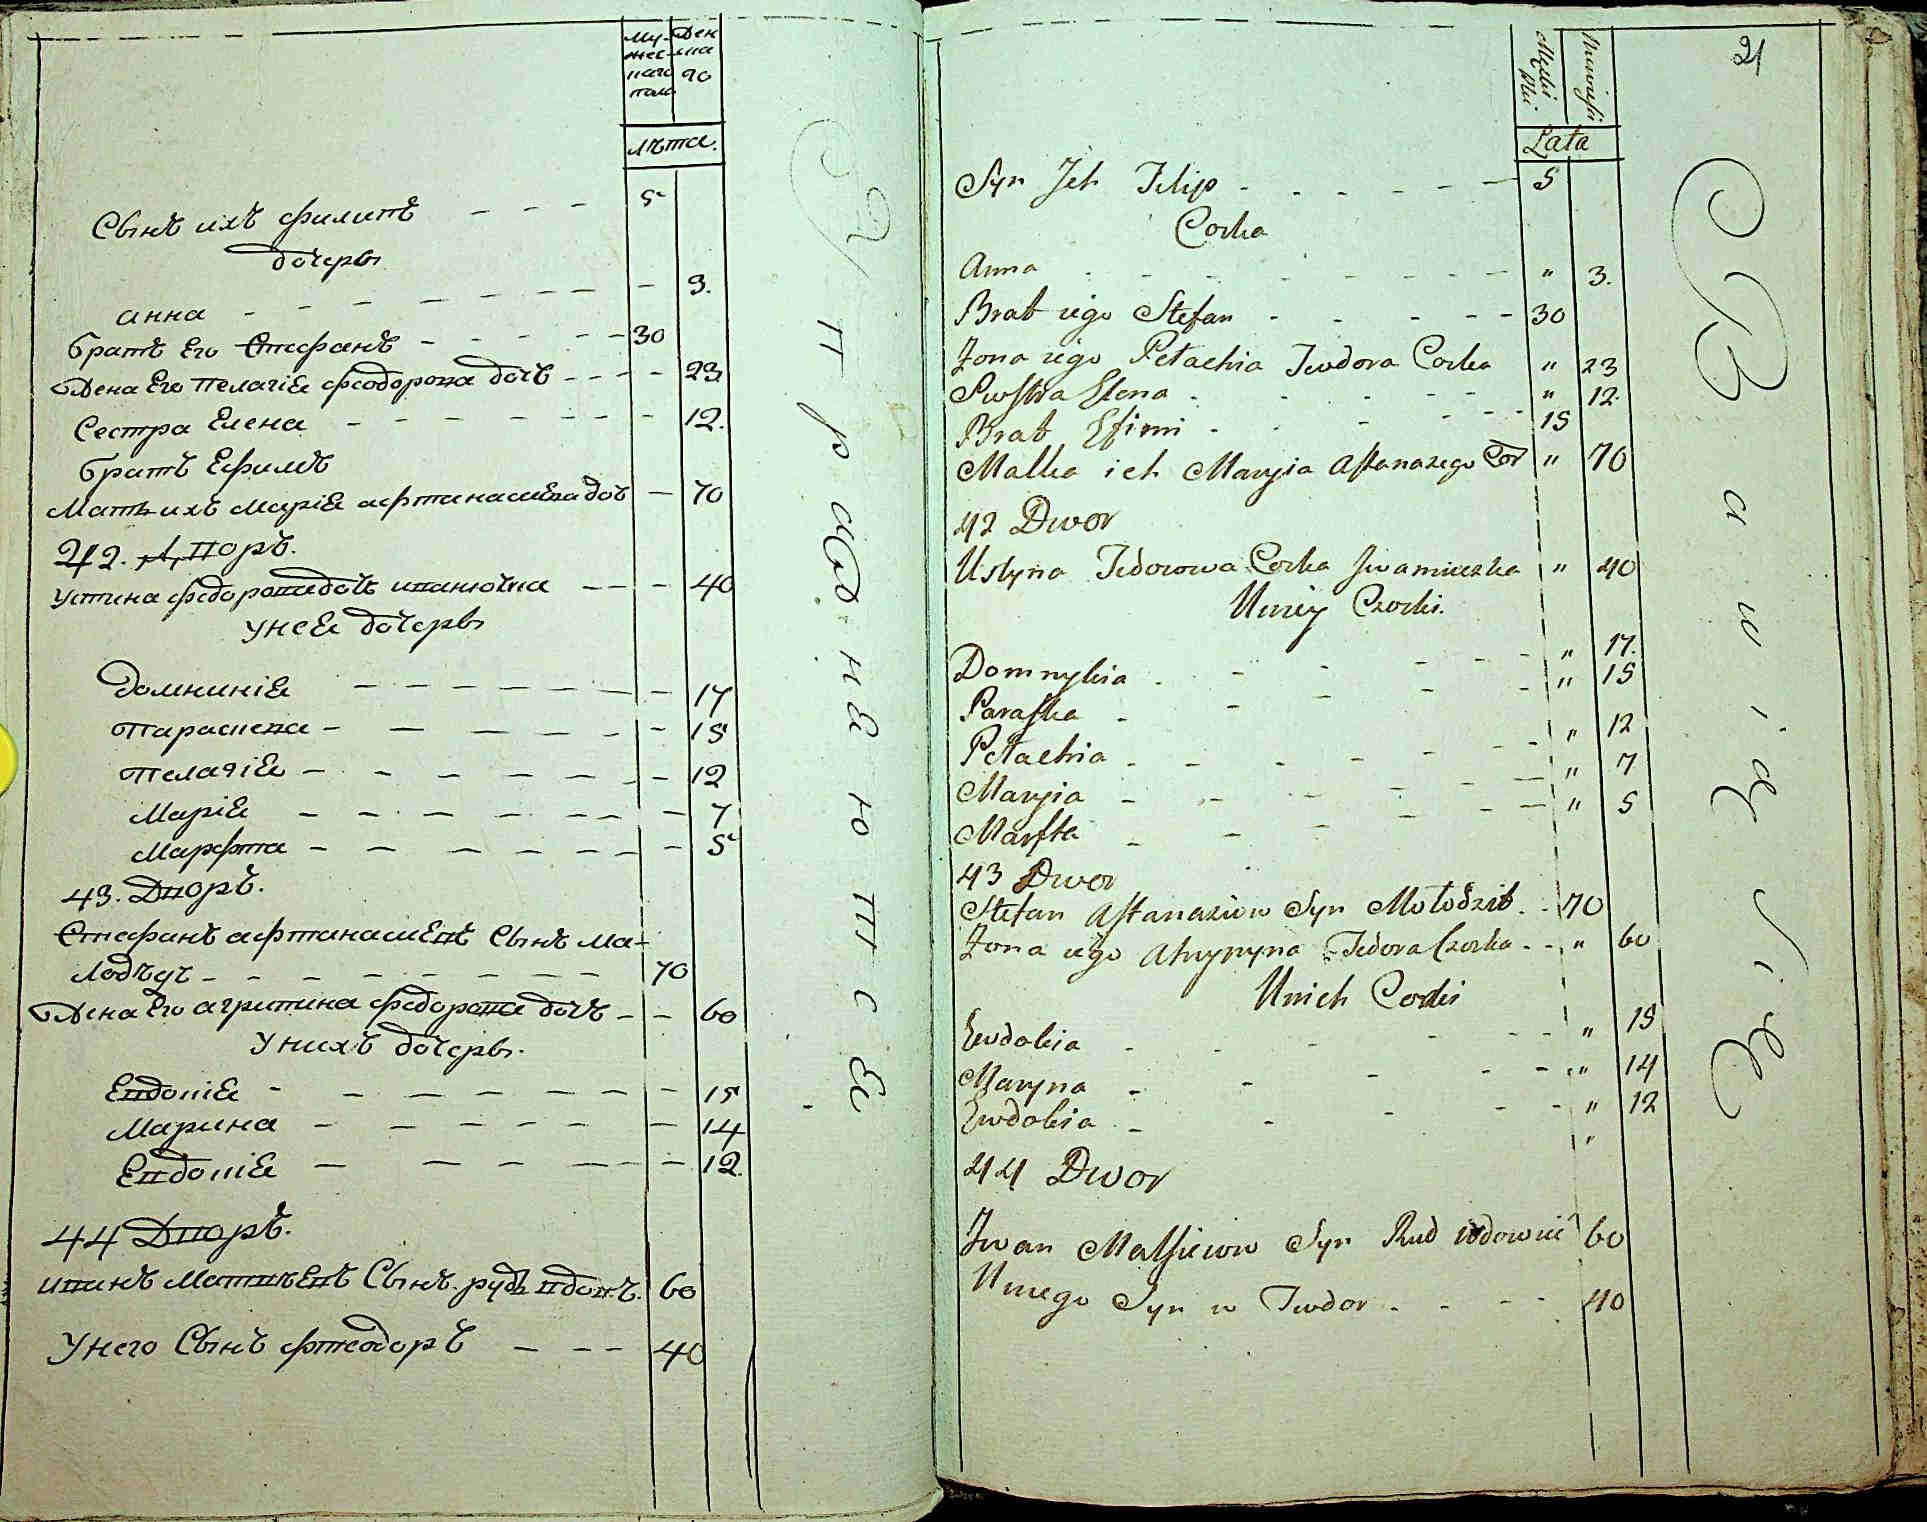 Му-
жес-
каго
пола
Жен
ска
го
лѣта.
Сынъ ихъ филипъ - - - 5
дочеры
анна - - - - - - - - 3.
братъ Его Стефанъ - - - - - 30
Жена Его пелагіѧ феодорова дочь - - - - 23
Сестра Елена - - - - - - - 12.
братъ Ефимъ
Мать ихъ маріѧ афтанасиева доч - 70
42. Дворъ.
устина федорова дочь иванючка - - - 40
у неѧ дочеры
домникіѧ - - - - - - - 17
параскева - - - - - - - 15
пелагіѧ - - - - - - - 12
маріѧ - - - - - - - 7
марфта - - - - - - - 5
43. Дворъ.
Стефанъ афтанасиевъ Сынъ ма-
лодъцъ - - - - - - - 70
Жена Его агрипина федорова дочъ - - 60
у нихъ дочеры.
Евдокіѧ - - - - - - - 15
марина - - - - - - - 14
Евдокіѧ - - - - - - 12.
44 Дворъ.
иванъ матвѣевъ Сынъ рудь вдов.ъ. 60
у него Сынъ фтеодоръ - - - 40
21
Męski
Płci
Niewieści
Lata
Syn Jch Filip - - - - - - 5
Corka
Anna - - - - - - - - " 3.
Brat iego Stefan - - - - - 30
Żona iego Pełachia Teodora Corka " 23
Siostra Elena - - - - - " 12.
Brat Efimi - - - - - 15
Matka ich Maryia Aftanazego Cor " 70
42 Dwor
Ustyna Fedorowa Corka Jwaniuczka " 40
Uniey Czorki.
Domnykia - - - - - " 17.
Paraska - - - - - " 15
Pełachia - - - - - - " 12
Maryia - - - - - - " 7
Marfta - - - - - " 5
43 Dwor
Stefan Aftanaziow Syn Mołodzit. - 70
Żona iego Ahrypyna Fedora Czorka - - " 60
Unich Corki
Ewdokia - - - - - " 15
Maryna - - - - - " 14
Ewdokia - - - - - " 12
"
44 Dwor
Jwan Matfieiow Syn Rud wdowiec 60
Uniego Syn w Teodor - - - - 40